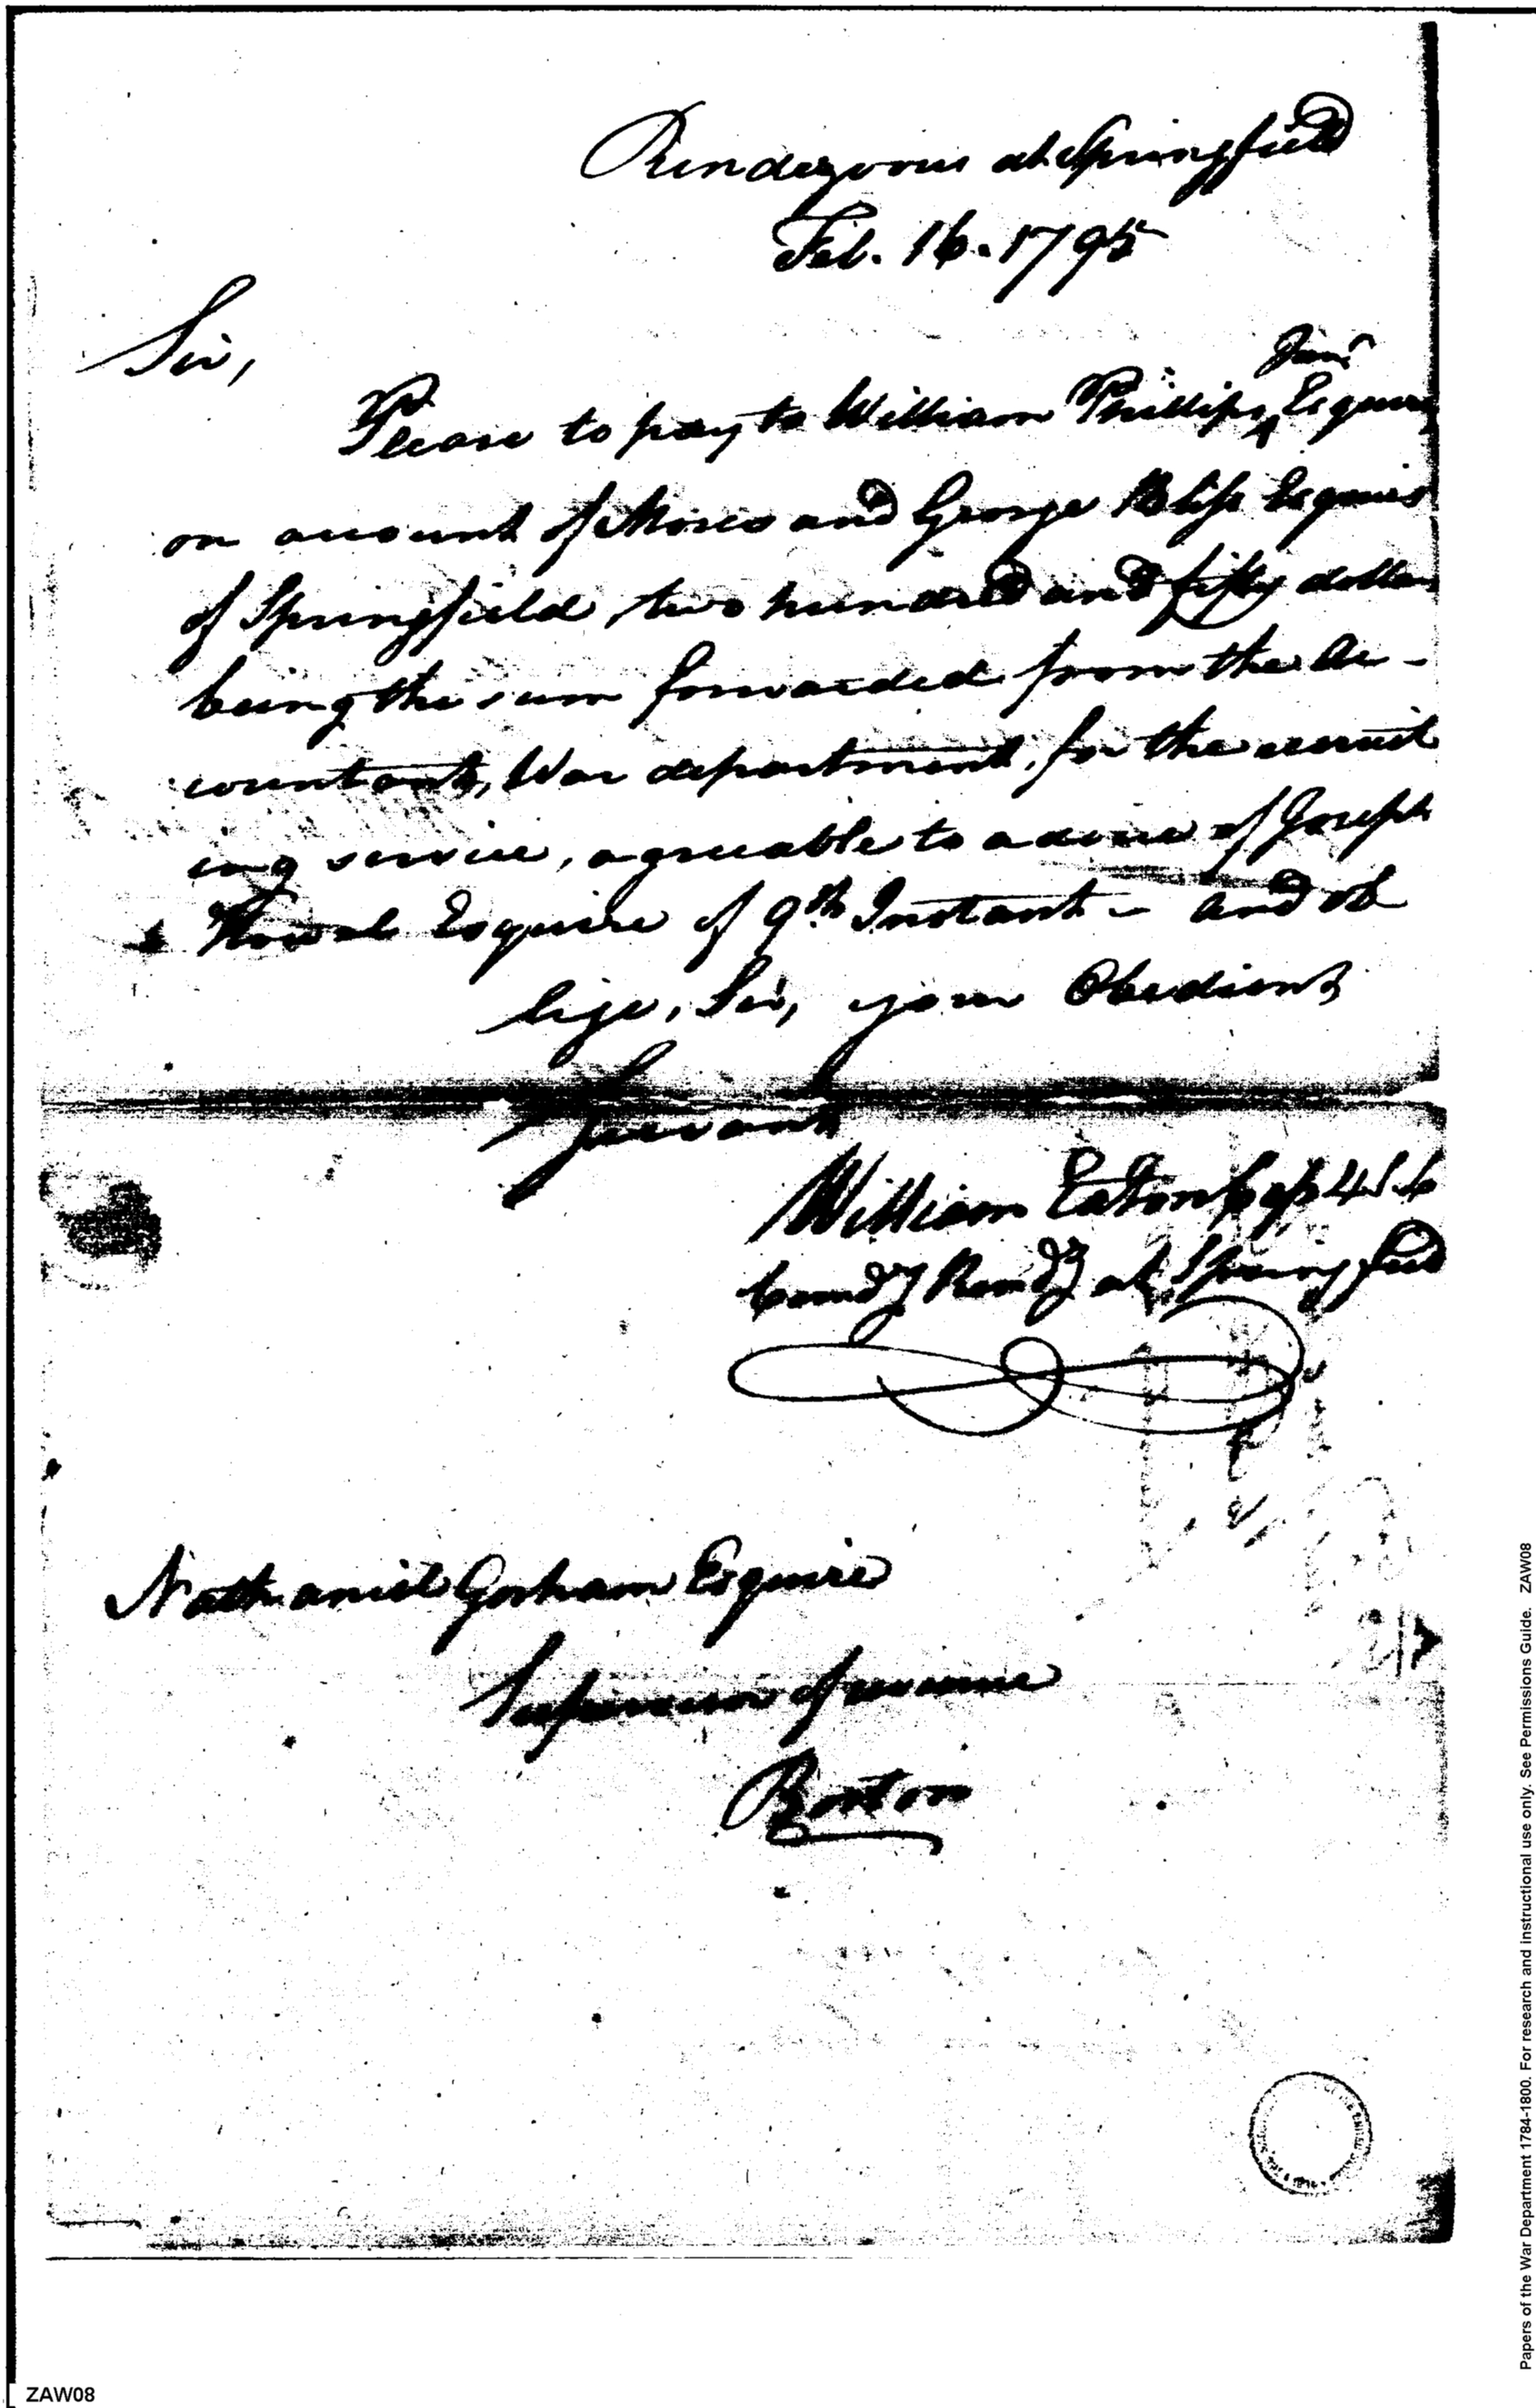 Rendezvous at Springfield
Feb. 16. 1795
Sir,
Junr
Please to pay to William Phillips ^ Esquire
on account of Moses and George Bliss Esquires
of Springfield, two hundred and fifty dollars
being the sum forwarded from the Ac-
countant, War department, for the recruit
ing service, agreeable to advice of Joseph
Howel Esquire of 9th Instant - and ob
lige, Sir, your Obedient
Servant
William Eaton Capt 4 S. L
Comdg Rendz at Springfield
Nathaniel Gorham Esquire
Supervisor of revenue
Boston
ZAW08
Papers of the War Department 1784-1800. For research and instructional use only. See Permissions Guide. ZAW08